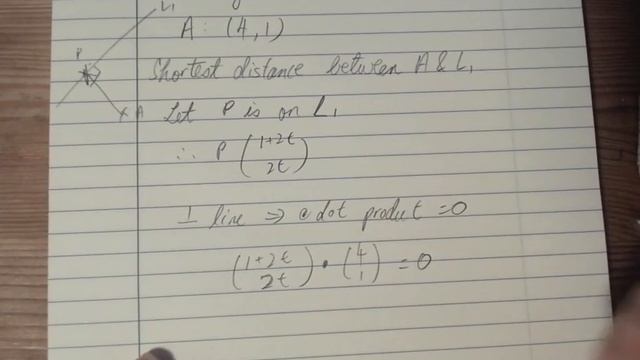 L₁
A : (4,1)
P
Shortest distance between A & L₁
A
Let P is on L₁
∴ P (1+2t
2t)
⊥ line ⇒ dot product = 0
(1+2t
2t) • (4
1) = 0